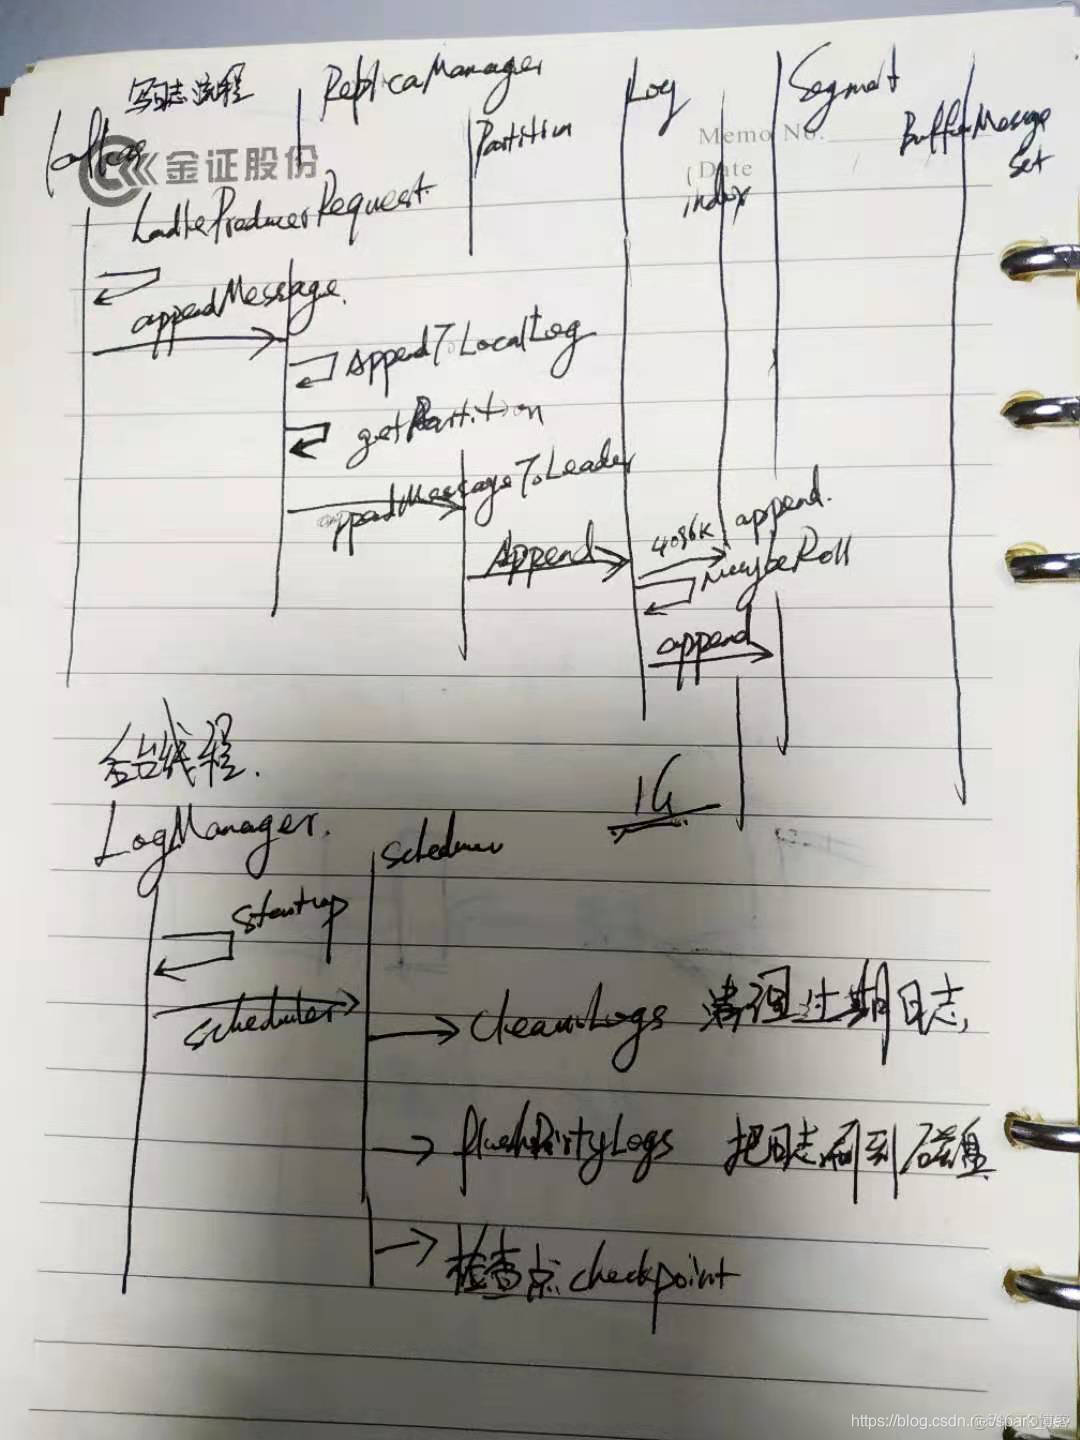 写日志流程
ReplicaManager
Log
Segment
kafka
Partition
Memo No.
BufferMessage
Set
金证股份
Date
index
handleProducerRequest.
appendMessage.
AppendToLocalLog
getPartition
appendMessageToLeader
4096K append.
Append
maybeRoll
append
后台线程.
1G
LogManager.
scheduler
startup
scheduler
cleanupLogs 清理过期日志,
flushDirtyLogs 把日志刷到磁盘
检查点 checkpoint